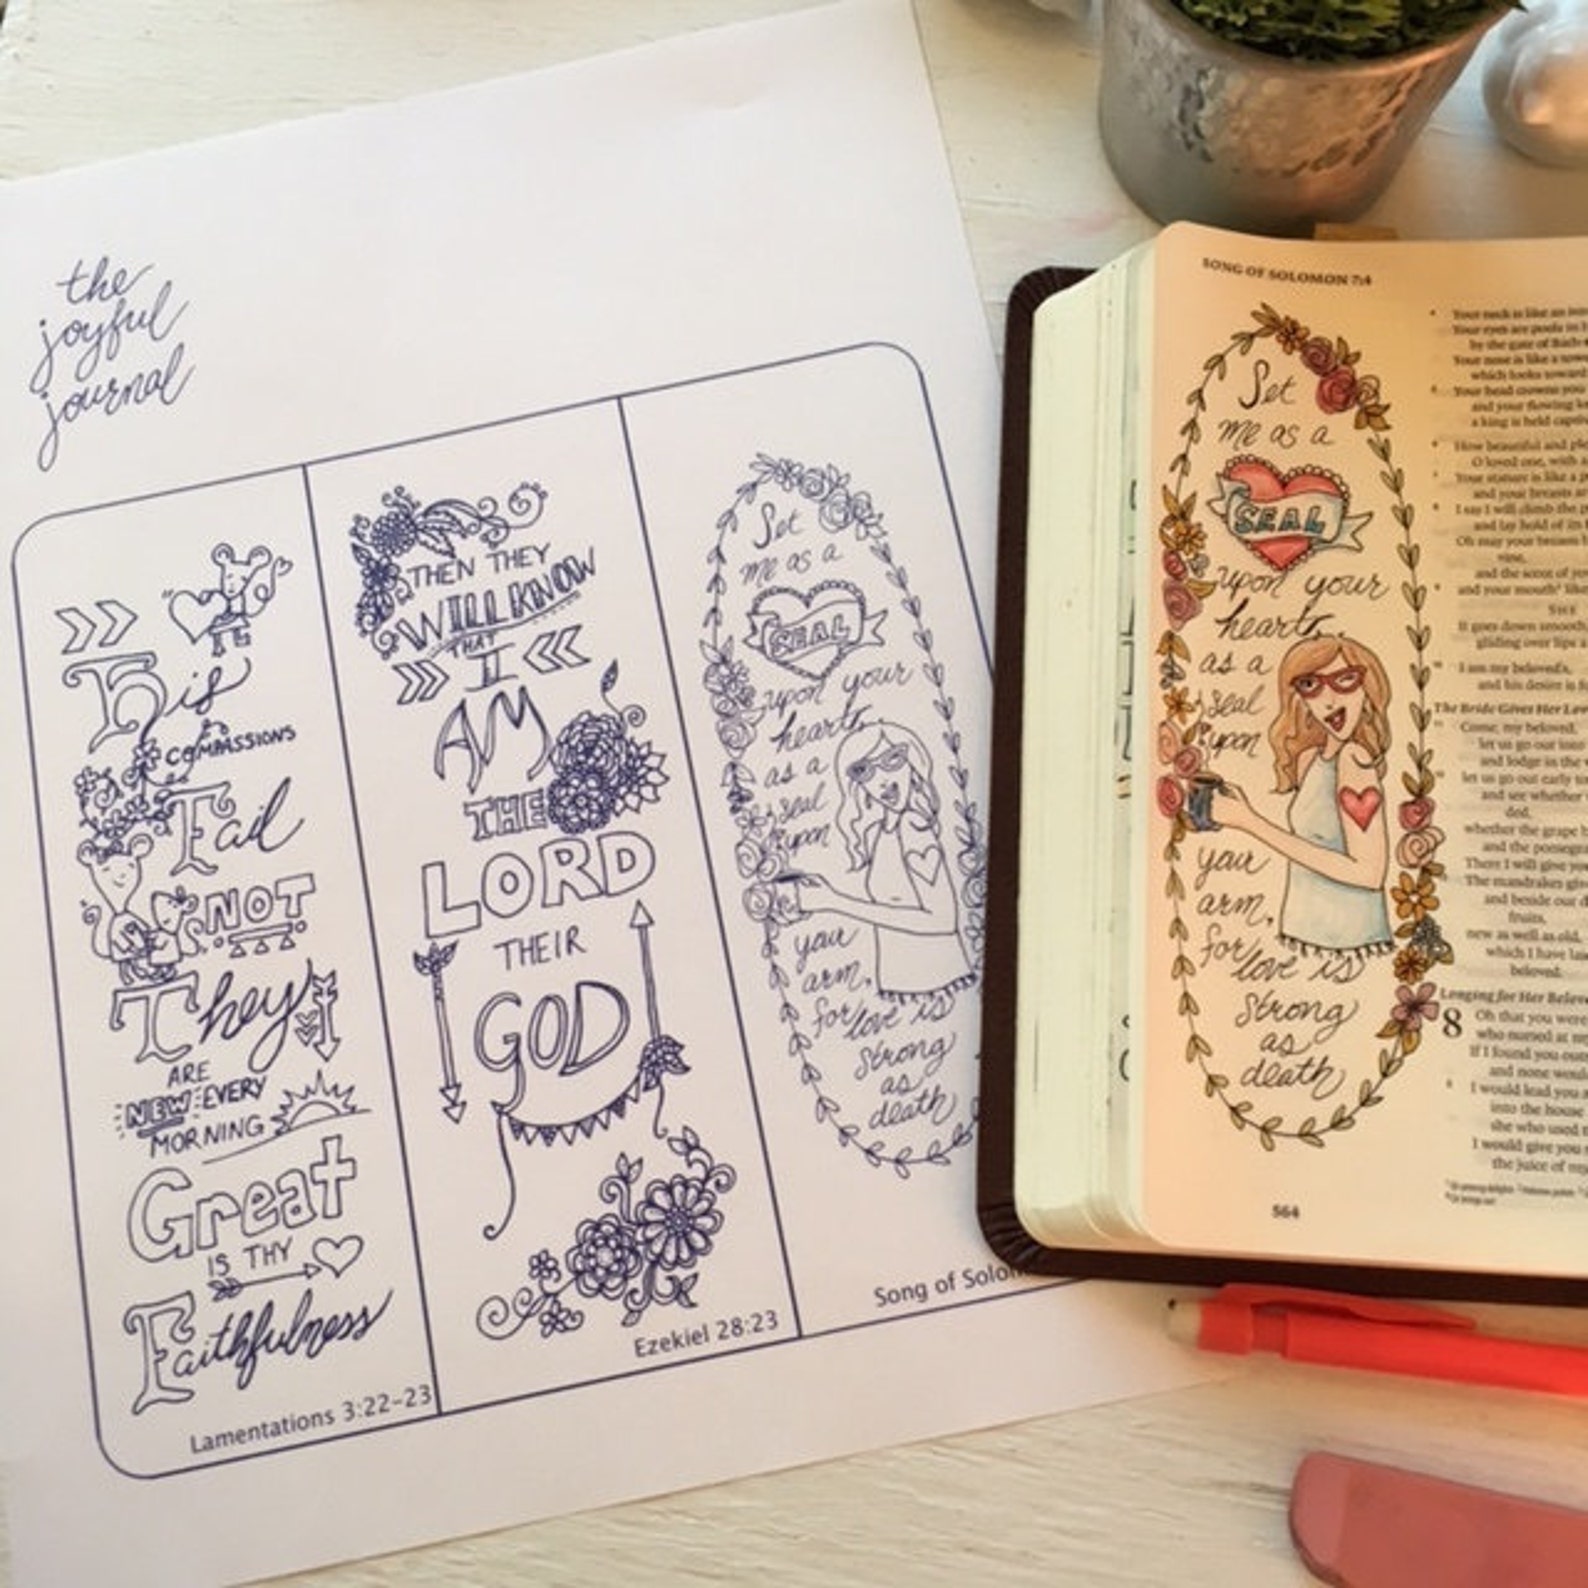 the
joyful
journal
His
COMPASSIONS
Fail
NOT
They
ARE
NEW EVERY
MORNING
Great
IS THY
Faithfulness
Lamentations 3:22-23
THEN THEY
WILL KNOW
THAT
I
AM
THE
LORD
THEIR
GOD
Ezekiel 28:23
Set
me as a
SEAL
upon your
heart,
as a
seal
upon
your
arm,
for love is
strong
as
death
Song of
SONG OF SOLOMON 7:4
Set
me as a
SEAL
upon your
heart,
as a
seal
upon
your
arm,
for love is
strong
as
death
564
Your neck is like an
Your eyes are pools in
by the gate of
Your nose is like a
which looks toward
Your head crowns you
and your flowing
a king is held
How beautiful and
O loved one, with
Your stature is like a
and your breasts
I say I will climb the
and lay hold of
Oh may your breasts
vine,
and the scent of
and your mouth
SHE
It goes down smooth
gliding over lips
I am my beloved's,
and his desire is
The Bride Gives Her
Come, my beloved,
let us go out
and lodge in the
let us go out early
and see whether
ded,
whether the grape
and the
There I will give
The mandrakes
and beside our
fruits,
new as well as old,
which I have
beloved.
Longing for Her
8 Oh that you were
who nursed at
If I found you
and none would
I would lead you
into the house
she who used
I would give you
the juice of